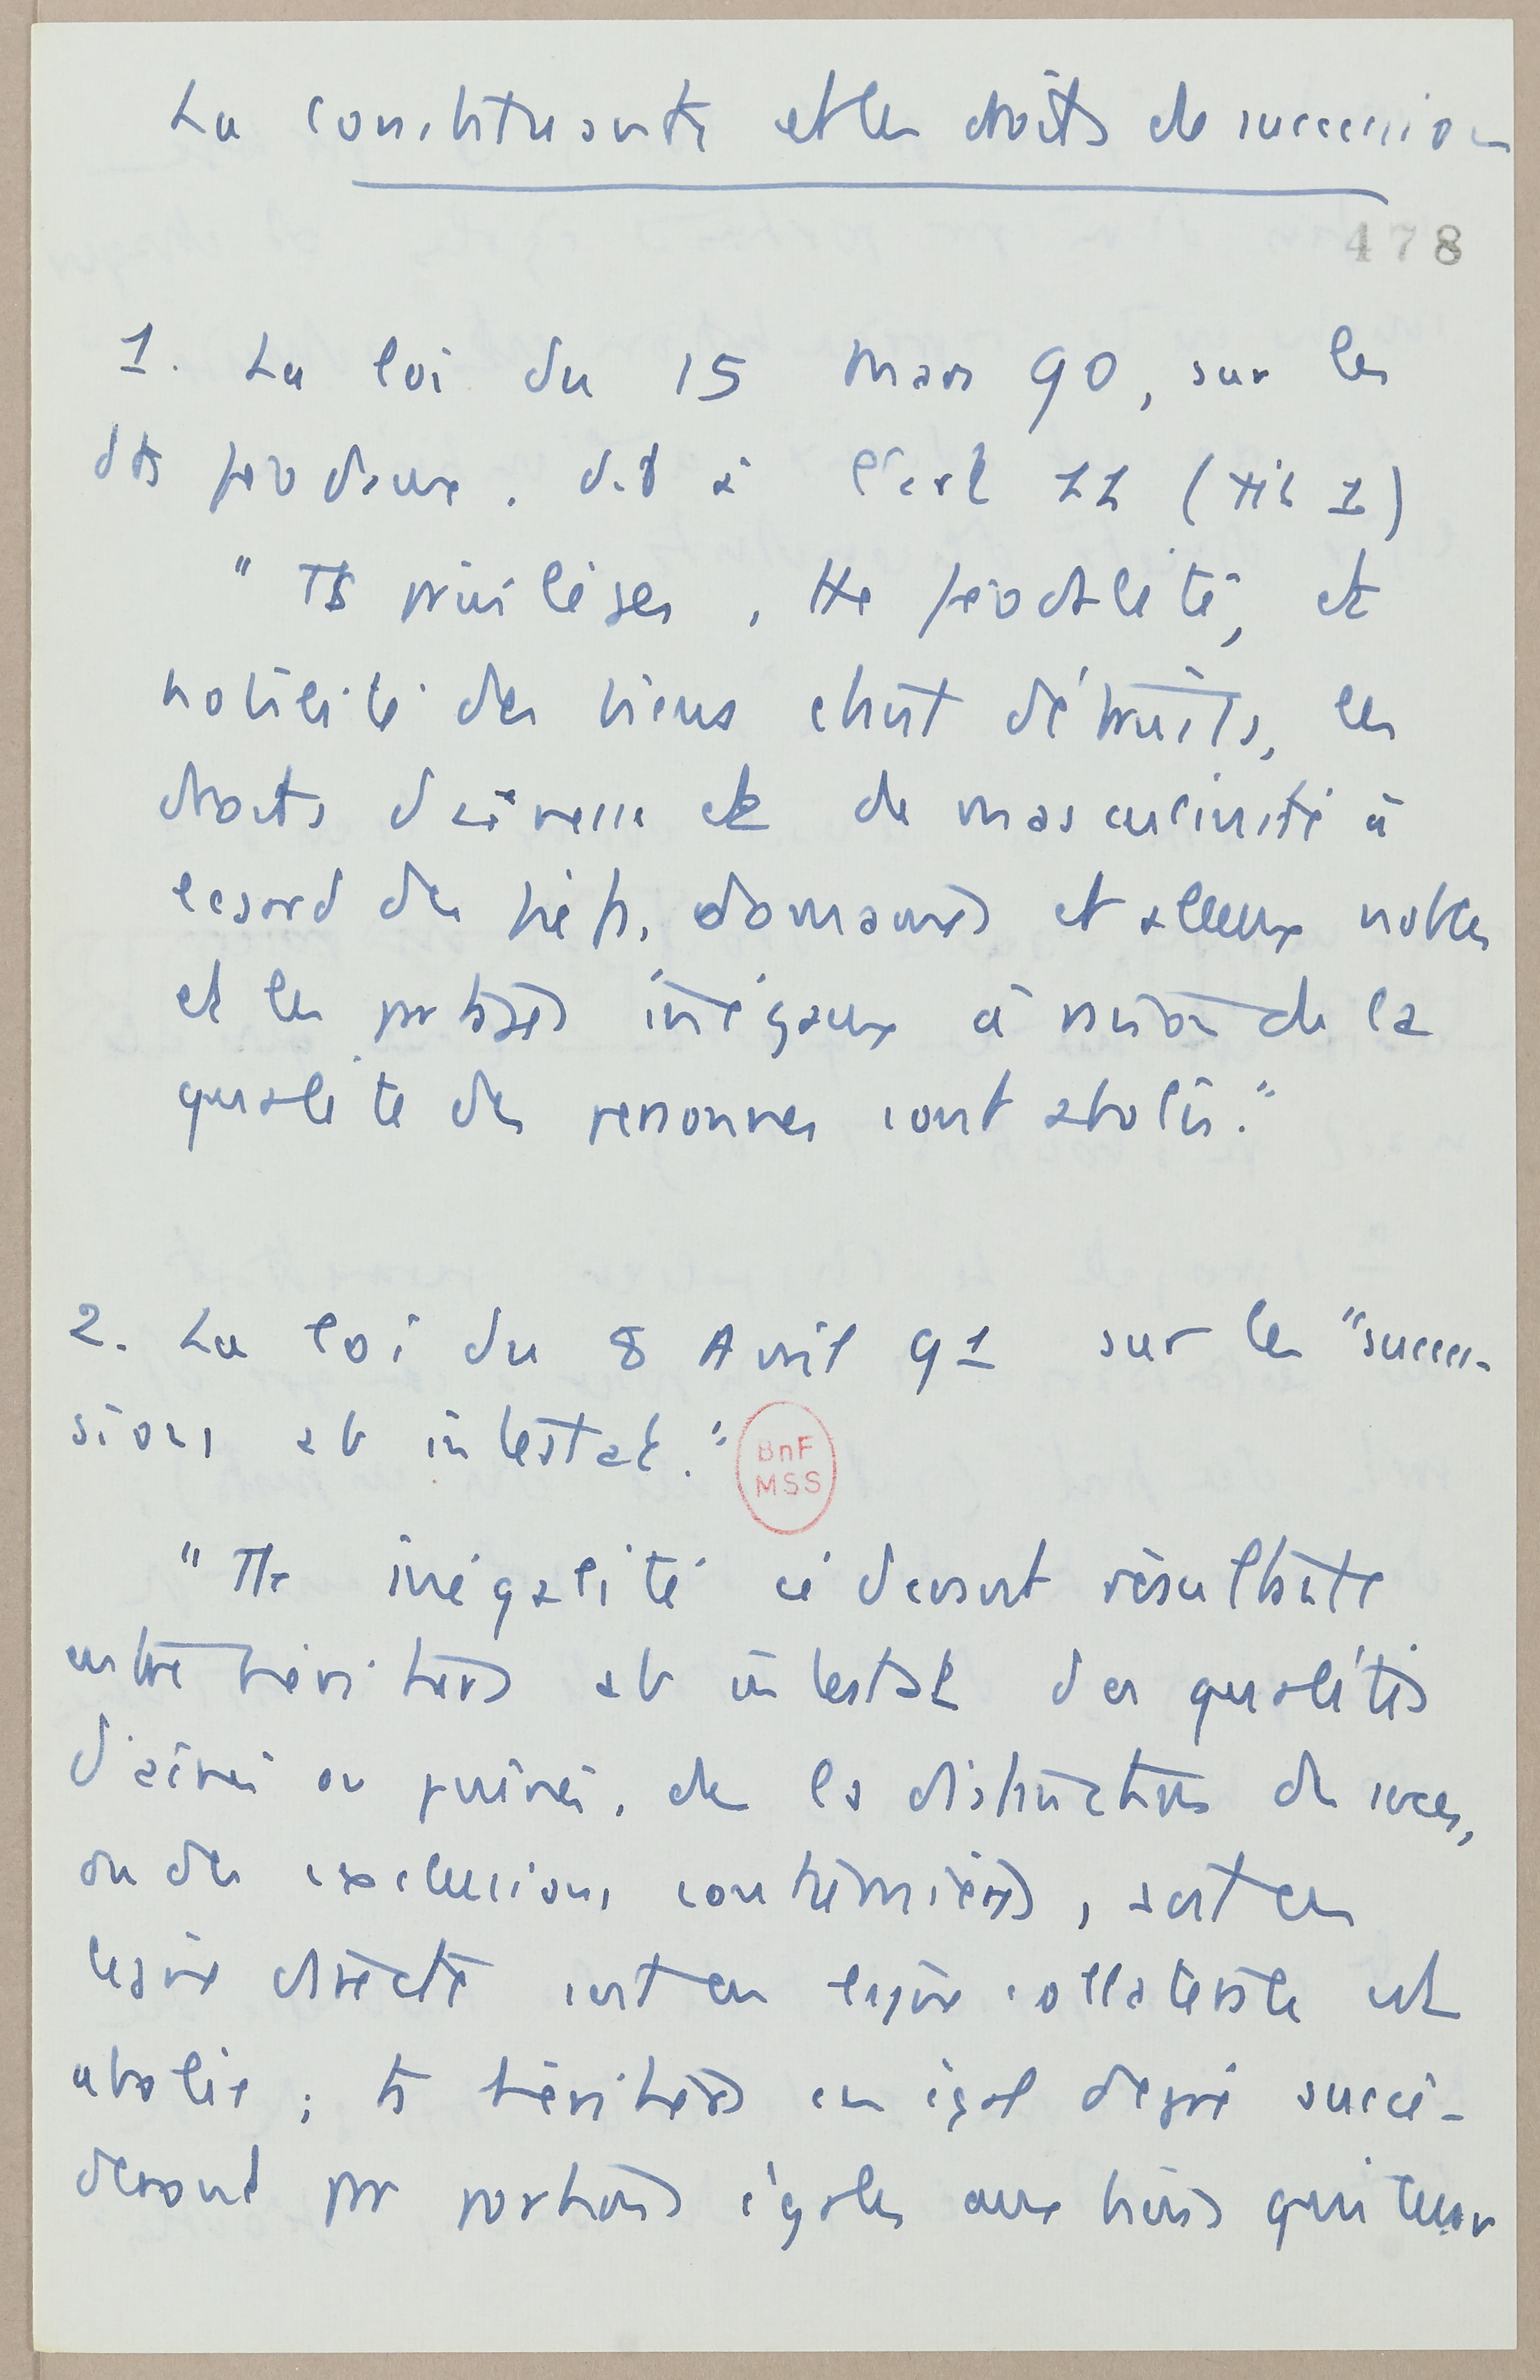 La Constituante et les droits de succession
478
1. La loi du 15 Mars 90, sur les
dts féodaux, dit à l'art 11 (tit 1)
" Ts privilèges, tte féodalité, et
nobilité des biens étant détruits, les
droits d'aînesse et de masculinité à
l'égard des fiefs, domaines et alleux nobles
et les partages inégaux à raison de la
qualité des personnes sont abolis."
2. La loi du 8 Avril 91 sur les "succes-
sions ab intestat."
BnF
MSS
" Tte inégalité ci devant résultante
entre héritiers ab intestat des qualités
d'aîné ou puîné, de la distinction des sexes,
ou des exclusions coutumières, soit en
ligne directe soit en ligne collatérale est
abolie ; ts héritiers en égal degré succè-
deront par portions égales aux biens qui leur